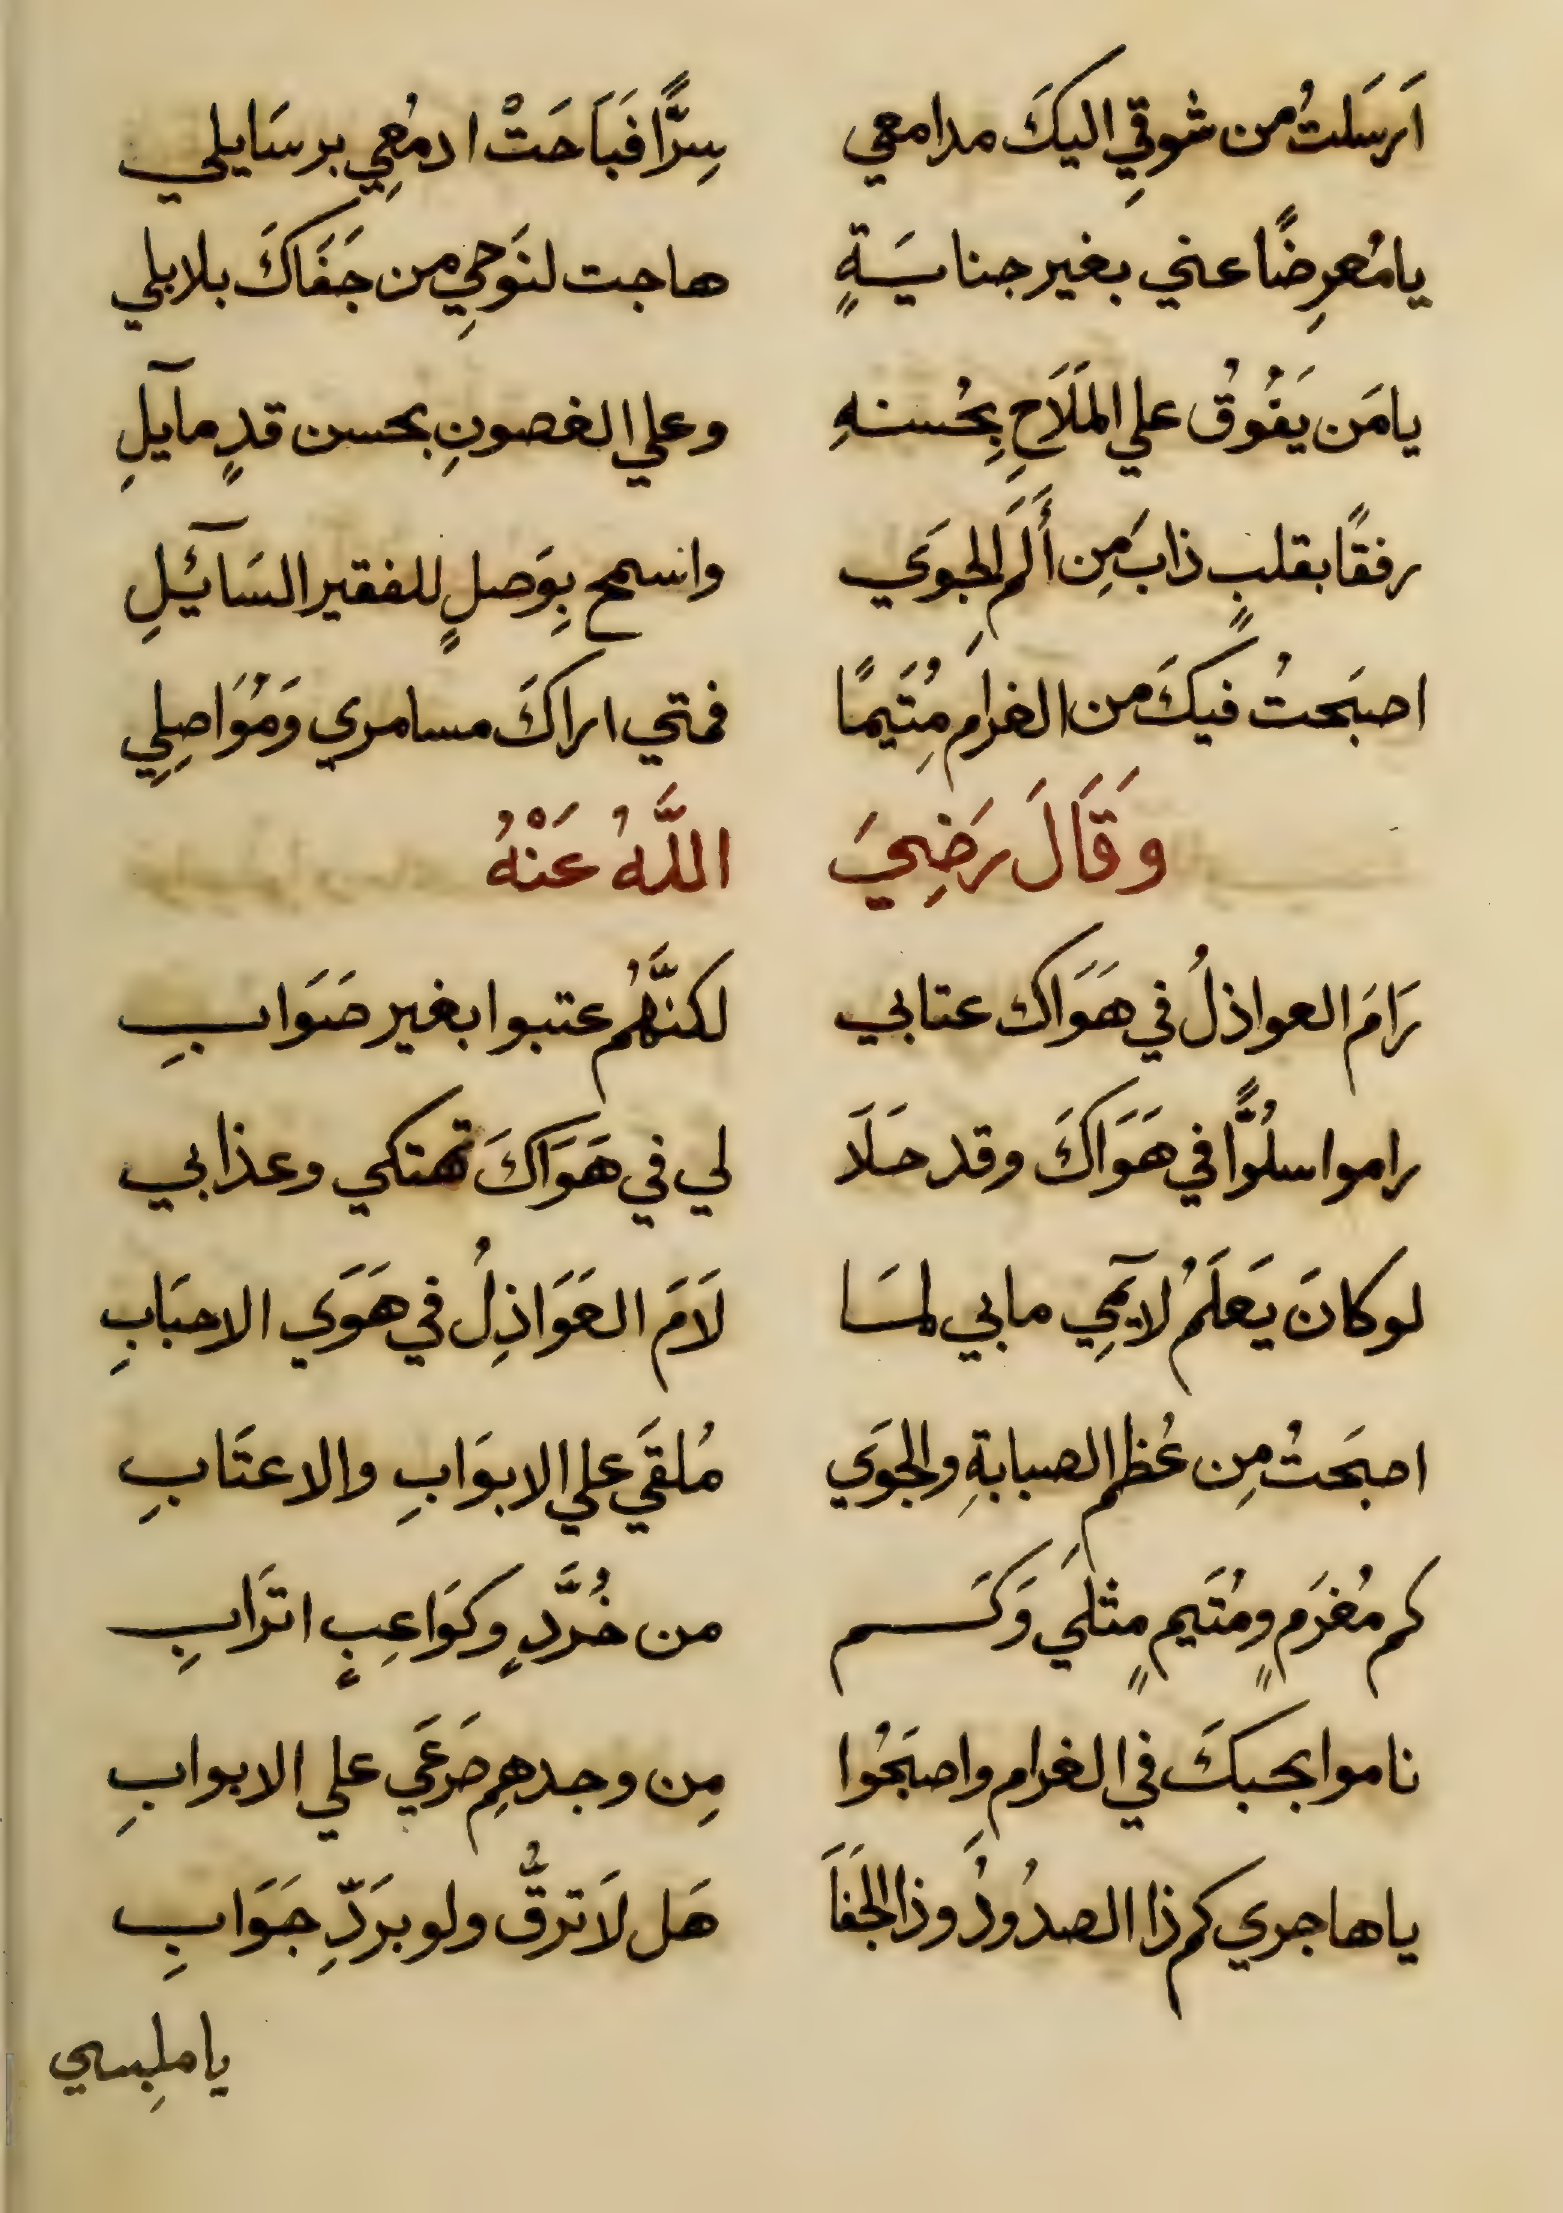 اَرسَلتُ من شوقِي اليكَ مدامعي سِرًّا فَبَاحَتْ ادمُعِي برسَايلي
يا مُعرِضًا عني بغير جنايَةٍ هاجت لنَوحِي من جَفَاكَ بلابلي
يا مَن يَفُوُق علي المَلَاحِ بِحُسنهِ وعلي الغصونِ بحسن قدٍ مآيلِ
رفقًا بقلبٍ ذابَ مِن أَلَمِ الجوَي واسمح بِوَصلٍ للفقير السَآئيلِ
اصبَحتُ فيكَ من الغرامِ مُتَيمًا فمتي اراكَ مسامري وَمُوَاصِلِي
وَقَالَ رَضِيَ اللَّهُ عَنْهُ
رَامَ العواذلُ في هَوَاك عتابي لكنَّهُم عتبوا بغير صَوَابِ
راموا سلُوًّا في هَوَاكَ وقد حَلَا لي في هَوَاكَ تهتكي وعذابي
لو كانَ يَعلَمُ لآيمِي مابي لمَا لَامَ العَوَاذِلُ في هَوَي الاحبَابِ
اصبَحتُ مِن عُظمِ الصبابةِ والجوَي مُلقَي علي الابوَابِ والاعتَابِ
كم مُغرَمٍ ومُتَيمٍ مثلَي وَكَم من خُرَّدٍ وكوَاعِبٍ اترَابِ
ناموا بحبكَ في الغرامِ واصبَحُوا مِن وجدهِم صَرعَي علي الابوابِ
يا هاجري كم ذا الصدُودُ وذا الجَفَاَ هَل لَا ترقُّ ولو برَدِّ جَوَابِ
يا ملبِسي